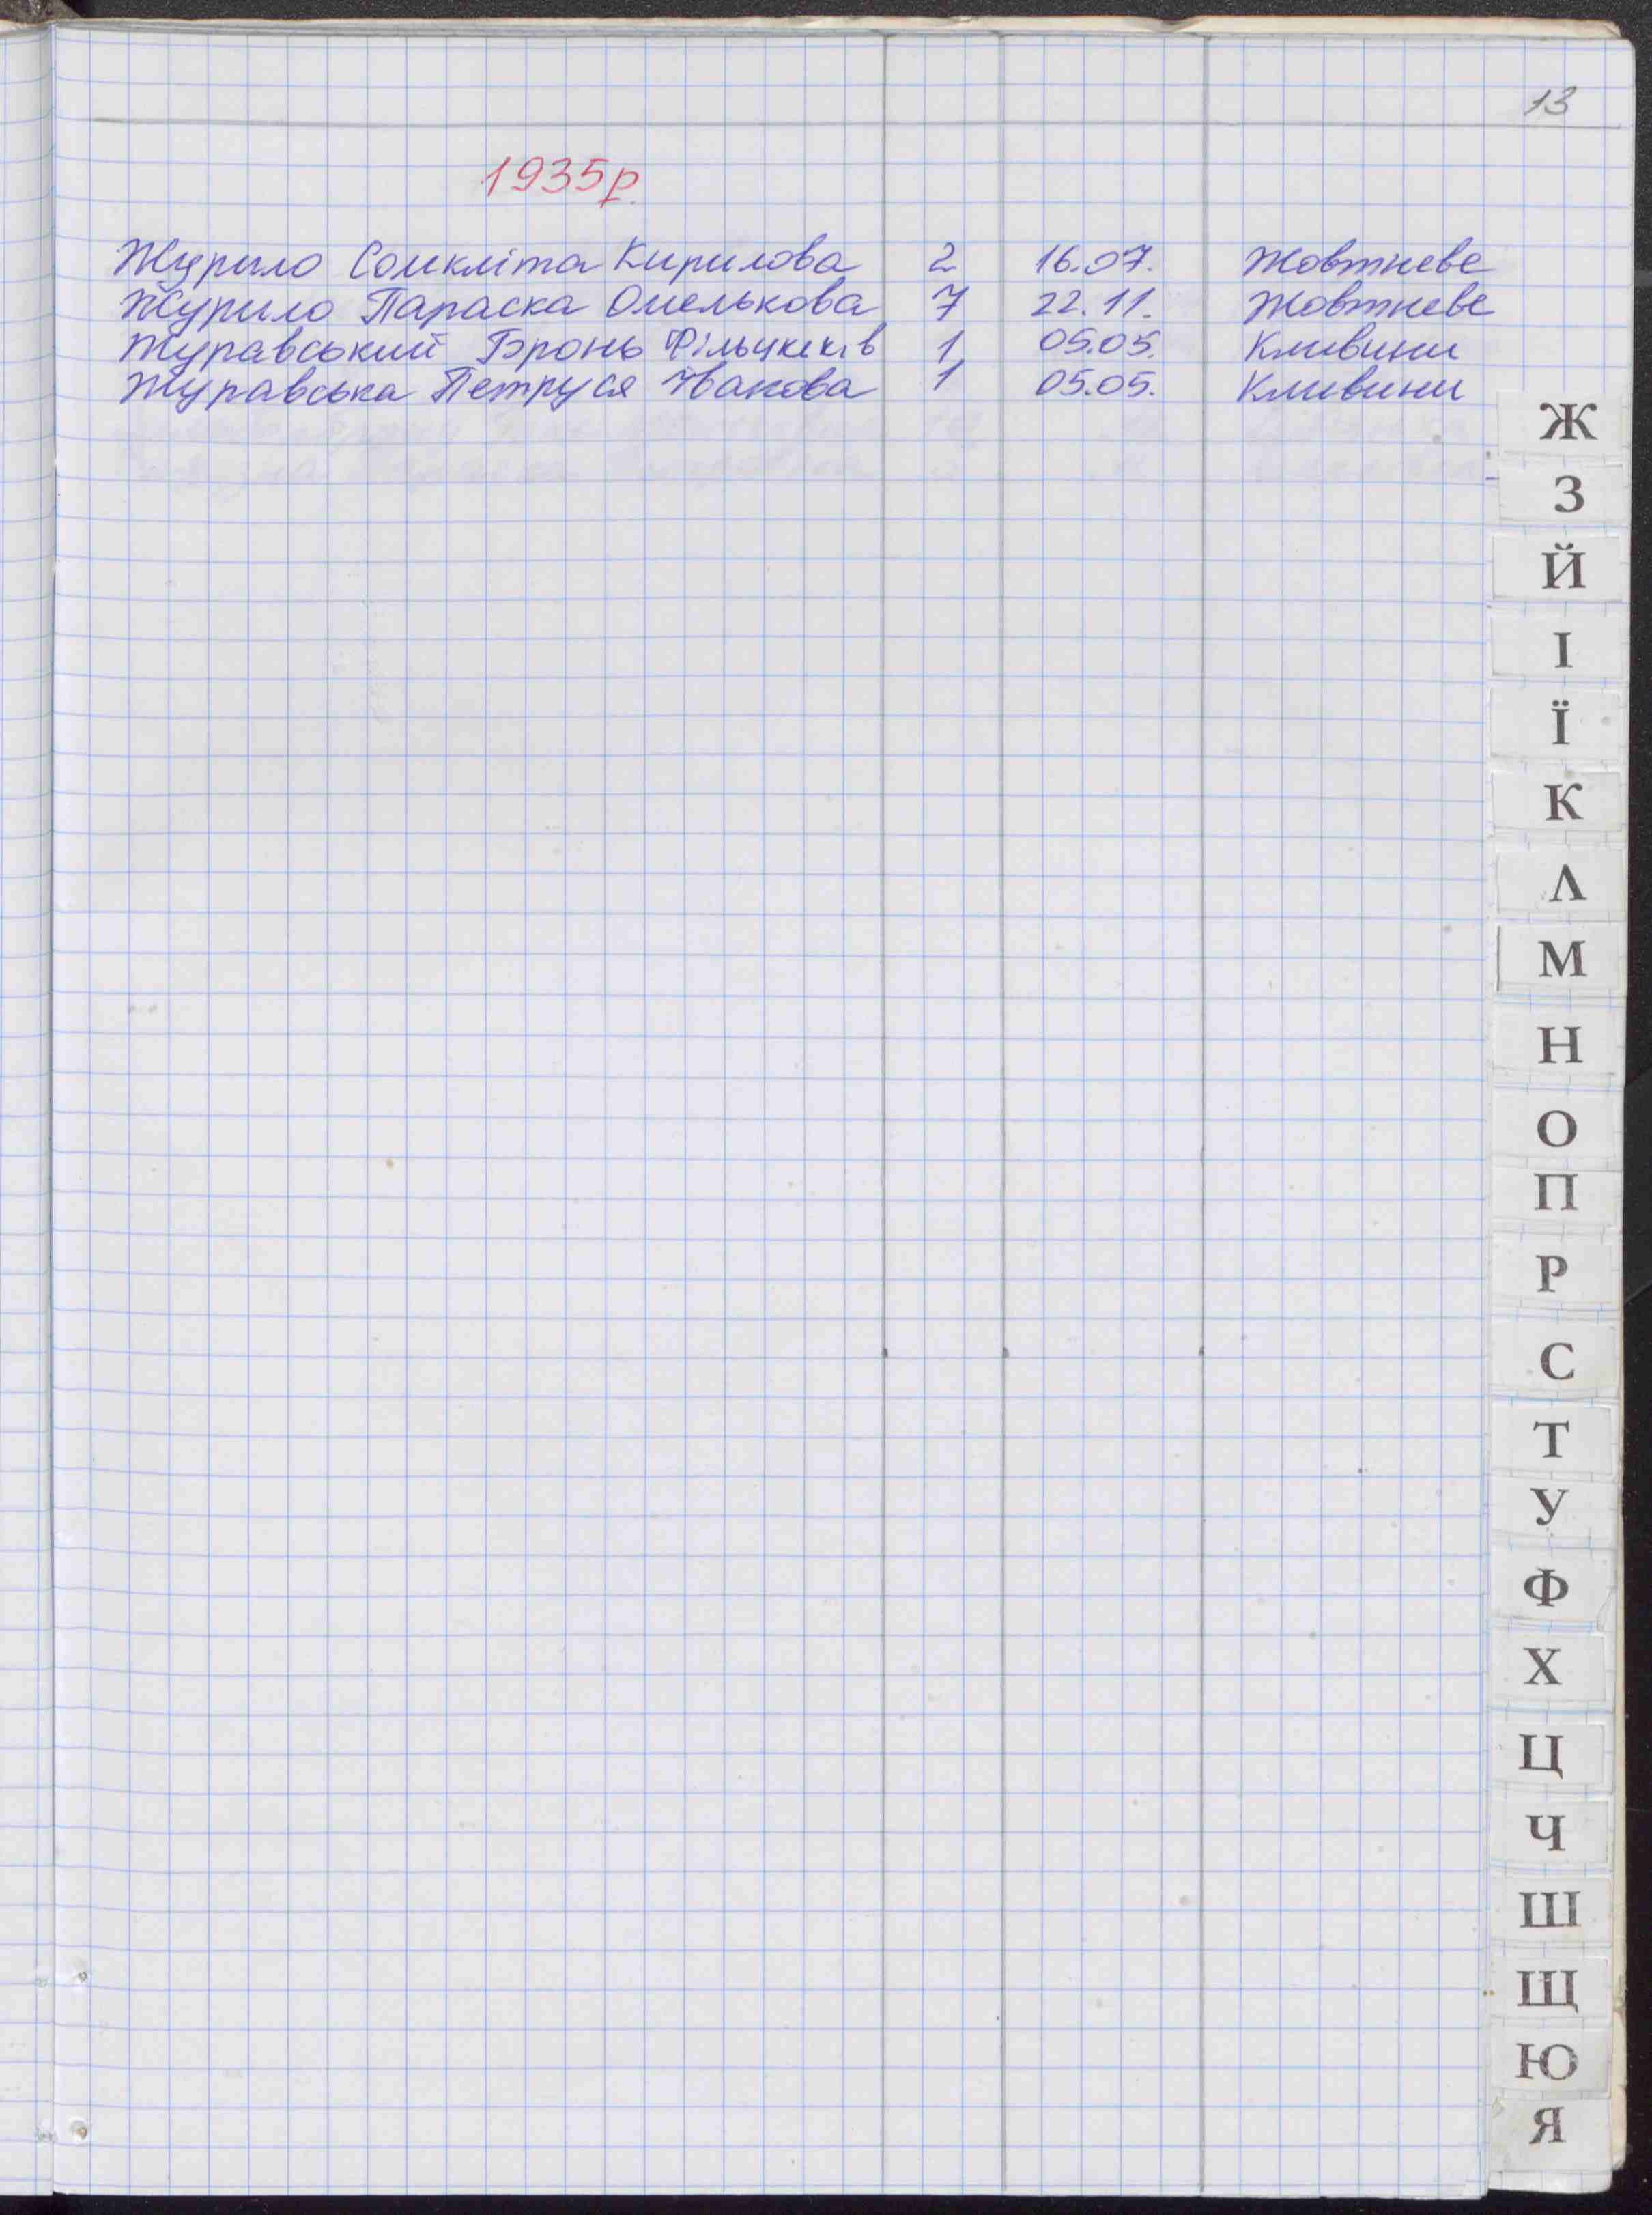 13
1935р.
Журило Сомкліта Кирилова 2 16.07. Жовтневе
Журило Параска Омелькова 7 22.11. Жовтневе
Журавський Бронь 1 05.05. Кливини
Журавська Петруся Іванова 1 05.05. Кливини
Ж
З
Й
І
Ї
К
Л
М
Н
О
П
Р
С
Т
У
Ф
Х
Ц
Ч
Ш
Щ
Ю
Я